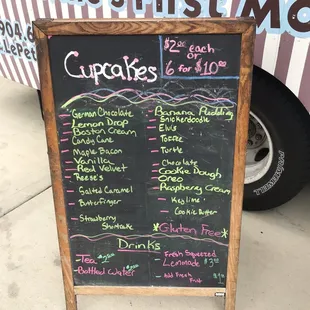 Cupcakes
$2.00 each
or
6 for $10.00
German Chocolate
Lemon Drop
Boston Cream
Candy Cane
Maple Bacon
Vanilla
Red Velvet
Reese's
Salted Caramel
Butterfinger
Strawberry
Shortcake
Banana Pudding
Snickerdoodle
Elvis
Toffee
Turtle
Chocolate
Cookie Dough
Oreo
Raspberry Creme
Key Lime
Cookie Butter
*Gluten Free*
Drinks
Tea
Bottled Water
Fresh Squeezed
Lemonade
Add Fresh
Fruit
904
LePet